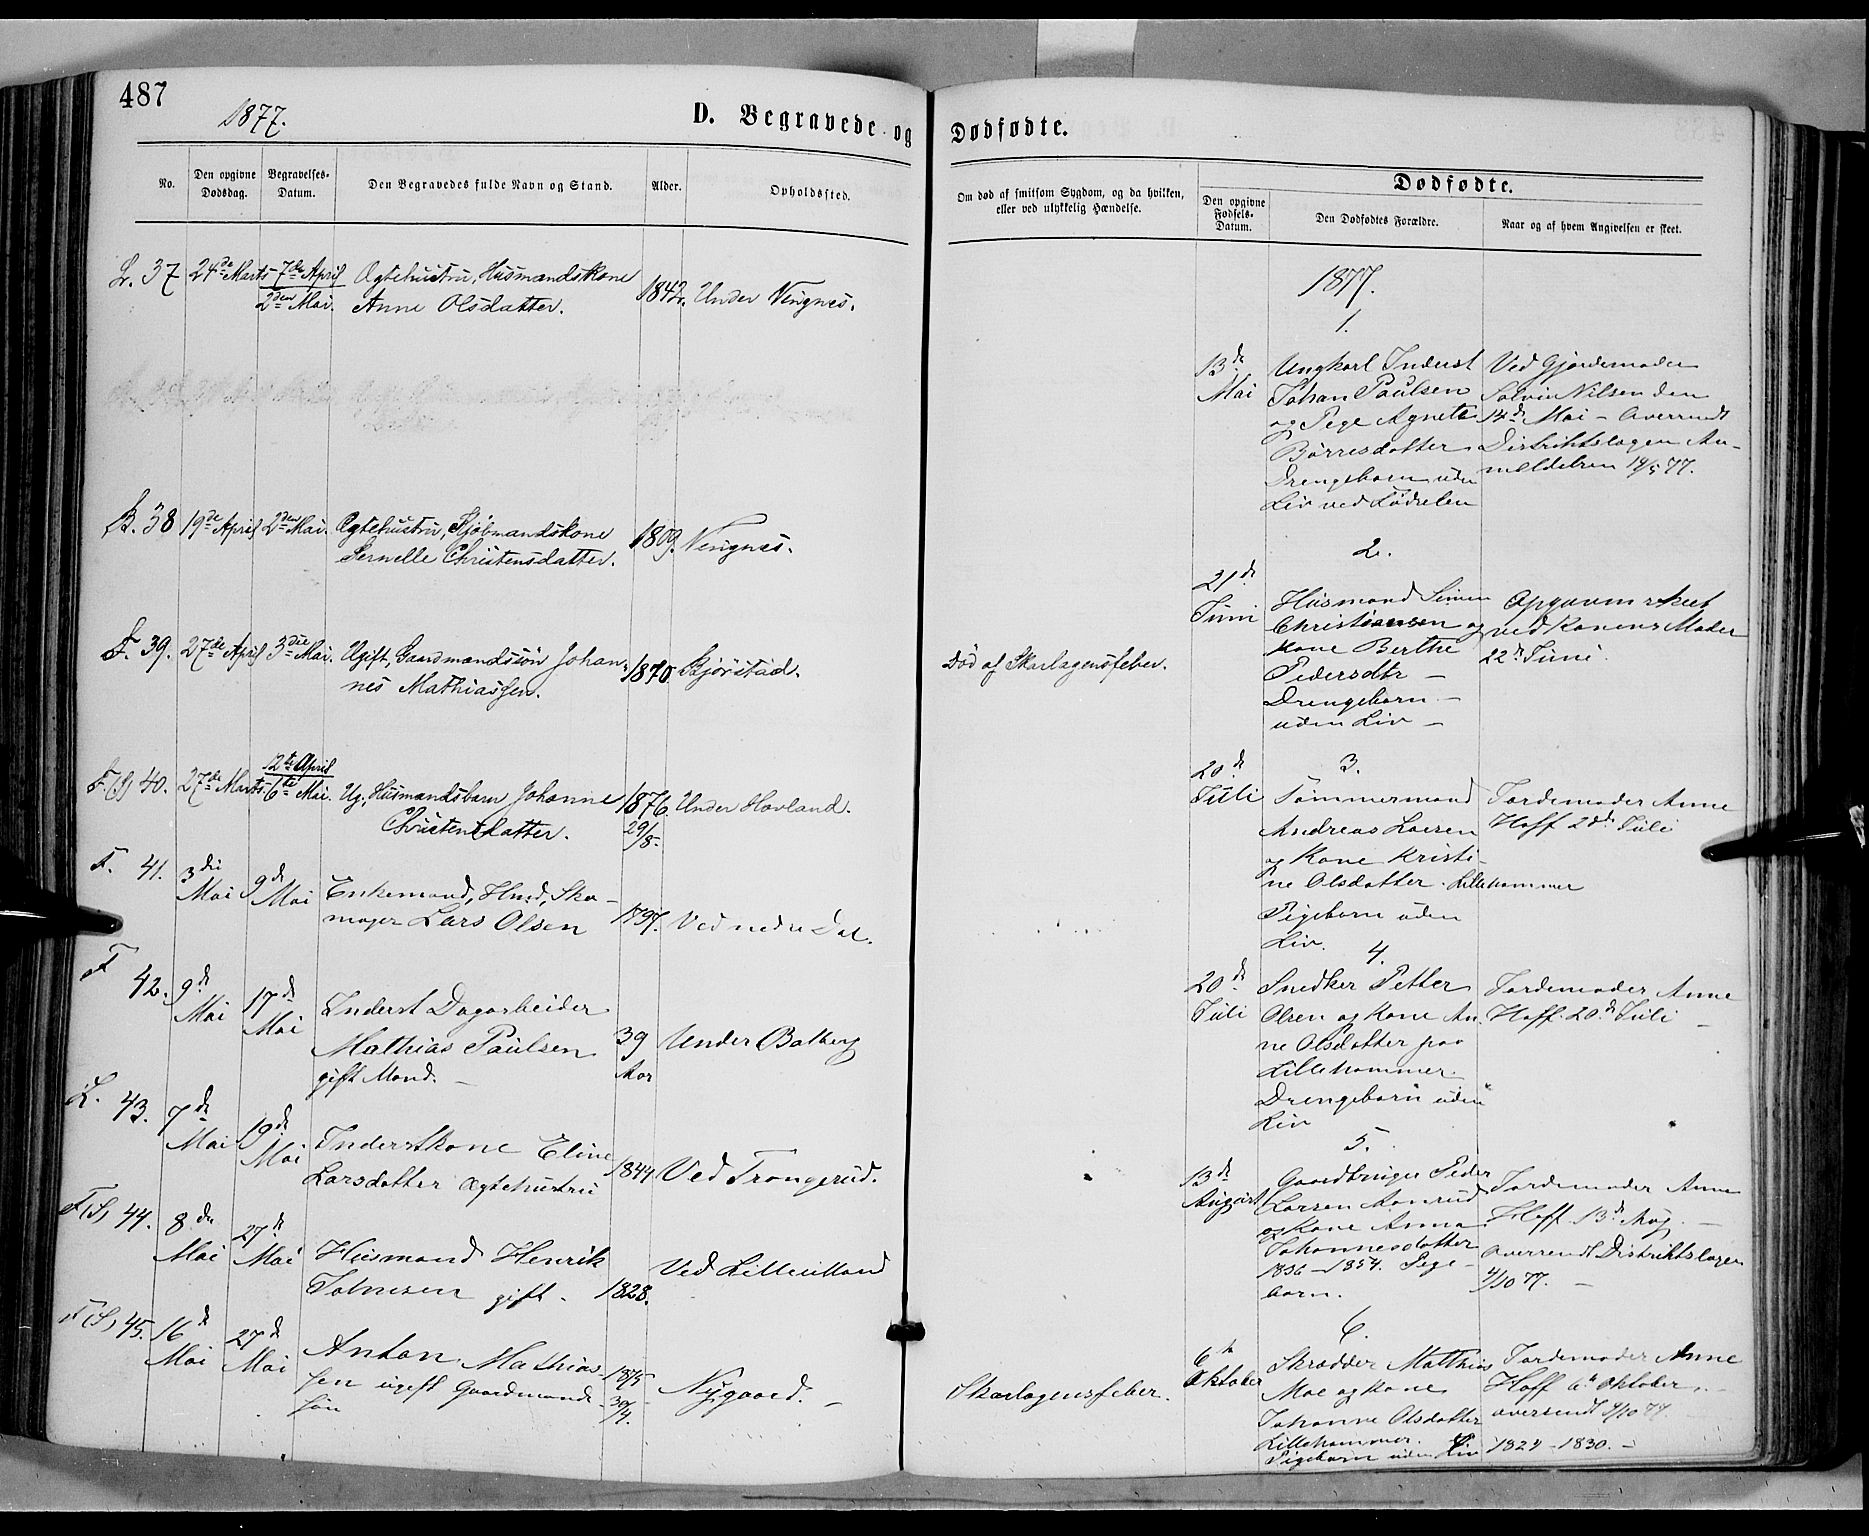 487
1877.
D. Begravede og
No.
Den opgivne
Dødsdag.
Begravelses-
Datum.
Den Begravedes fulde Navn og Stand.
Alder.
Opholdssted.
L. 37
24de Marts
7de April
2den Mai.
Ægtehustru, Husmandskone
Anne Olsdatter.
1842.
Under Vingnes.
B. 38
19de April
2den Mai.
Ægtehustru, Kjøbmandskone
Pernelle Christensdatter.
1809.
Vingnes.
F. 39.
27de April
3die Mai.
Ugift, Gaardmandssøn Johan-
nes Mathiassen.
1870.
F.(S) 40.
27de Marts
12te April
6te Mai.
Ug. Husmandsbarn Johanne
Christensdatter.
1876
29/8.
Under Hovland.
F. 41.
3die
Mai
9de
Mai
Enkemand, Husmd, Sko-
mager Lars Olsen
1797.
Ved nedre Dal.
F 42.
9de
Mai
17de
Mai
Inderst Dagarbeider
Mathias Paulsen
gift Mand. –
39
Aar
Under Balberg
L. 43.
7de
Mai
19de
Mai
Inderstkone Eline
Larsdatter Ægtehustru
1844
Ved Trongerud.
F(S) 44.
8de
Mai
27de
Mai
Husmand Henrik
gift.
1828.
Ved
F(S) 45.
16de
Mai
27de
Mai
Anton Mathias-
sen ugift Gaardmands-
søn
1875
30/4.
Nygaard. –
Dødfødte.
Om død af smitsom Sygdom, og da hvilken,
eller ved ulykkelig Hændelse.
Dødfødte.
Den opgivne
Fødsels-
Datum.
Den Dødfødtes Forældre.
Naar og af hvem Angivelsen er skeet.
Død af Skarlagensfeber.
Skarlagensfeber.
1877.
1.
13de
Mai
Ungkarl Inderst
Johan Paulsen
og Pige Agnete
Børresdatter
Drengebarn uden
Liv ved Fødselen
Ved Gjordemoder
Solvie Nilsen den
14de Mai – Oversendt
Distriktslægen An-
meldelsen 19/5 77.
2.
21de
Juni
Husmand Simen
Christiansen og
Kone Berthe
Pedersdtr –
Drengebarn –
uden Liv –
Opgaven skeet
ved Konens Moder
22de Juni.
3.
20de
Juli
Tømmermand
Andreas Larsen
og Kone Kristi-
ne Olsdatter. Lillehammer
Pigebarn uden
Liv.
Jordemoder Anne
Hoff 2de Juli
4.
20de
Juli
Snedker Petter
Olsen og Kone An-
ne Olsdatter paa
Lillehammer.
Drengebarn uden
Liv
Jordemoder Anne
Hoff. 20de Juli –
5.
13de
August
Gaardbruger Peder
Larsen Aanrud
og Kone Anna
Johannesdatter
1836 – 1854. Pige-
barn.
Jordemoder Anne
Hoff 13de Aug. –
oversendt Distriktslægen
4/10 77. –
6.
6te
Oktober
Skrædder Matthias
Moe og Kone
Johanne Olsdatter
Lillehammer.
Pigebarn uden Liv
Jordemoder Anne
Hoff 6te Oktober,
oversendt 9/10 77.
1829 – 1830. –